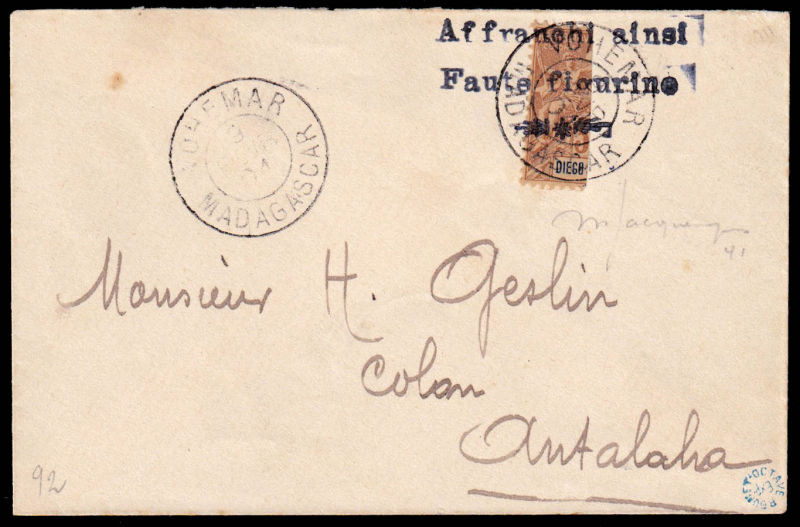 Affranchi ainsi
Faute figurine
VOHEMAR
MADAGASCAR
DIEGO
VOHEMAR
MADAGASCAR
Monsieur H. Geslin
Colon
Antalaha
92
OCTAVE ROUMET